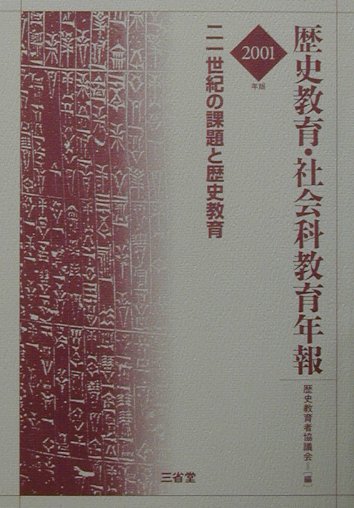 歴史教育・社会科教育年報
2001
年版
二一世紀の課題と歴史教育
歴史教育者協議会=[編]
三省堂